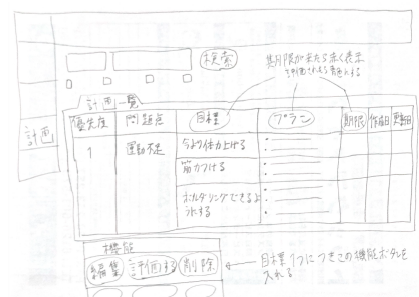 検索
期限が来たら赤く表示
評価されると青色にする
計画一覧
計画
優先度 問題点 目標 プラン 期限 作成日 更新日
1 運動不足 ちょい体力上げる
筋力つける
ボルダリングできるよ
うにする
機能
編集 評価する 削除
目標1つにつきこの機能ボタンを
入れる